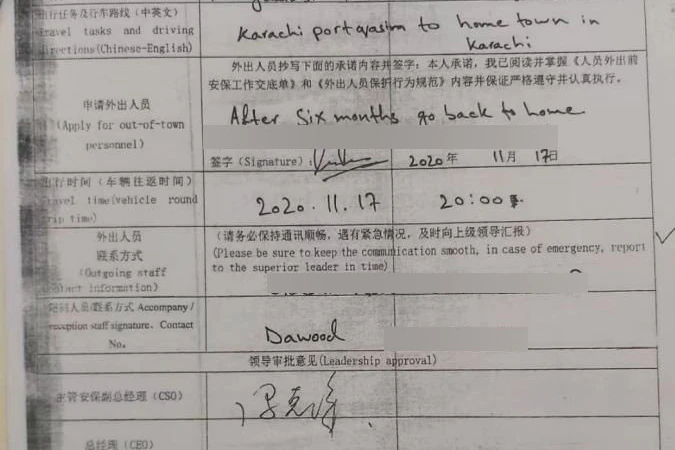 出行任务及行车路线（中英文）
travel tasks and driving
directions(Chinese-English)
Karachi port qasim to home town in
Karachi
外出人员抄写下面的承诺内容并签字：本人承诺，我已阅读并掌握《人员外出前
安保工作交底单》和《外出人员保护行为规范》内容并保证严格遵守并认真执行。
申请外出人员
(Apply for out-of-town
personnel)
After Six months go back to home
签字（Signature）:
2020年 11月 17日
出行时间（车辆往返时间）
travel time(vehicle round
trip time)
2020.11.17 20:00
外出人员
联系方式
(Outgoing staff
contact information)
（请务必保持通讯顺畅，遇有紧急情况，及时向上级领导汇报）
(Please be sure to keep the communication smooth, in case of emergency, report
to the superior leader in time)
陪同人员/联系方式 Accompany /
reception staff signature、Contact
No。
Dawood
领导审批意见(Leadership approval)
主管安保副总经理（CSO）
总经理（CEO）